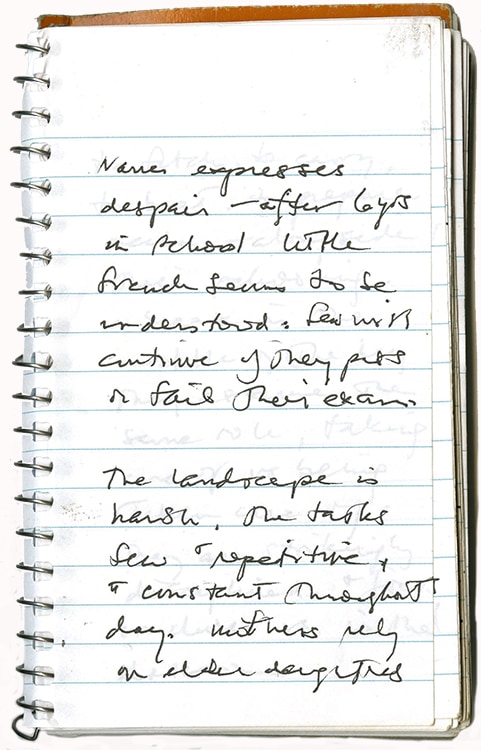 expresses
despair – after 6 yrs
in school little
French seems to be
understood. Few will
continue if they pass
or fail their exam.
The landscape is
harsh, the tasks
few repetitive,
constant throughout
day. Mothers rely
on elder daughters